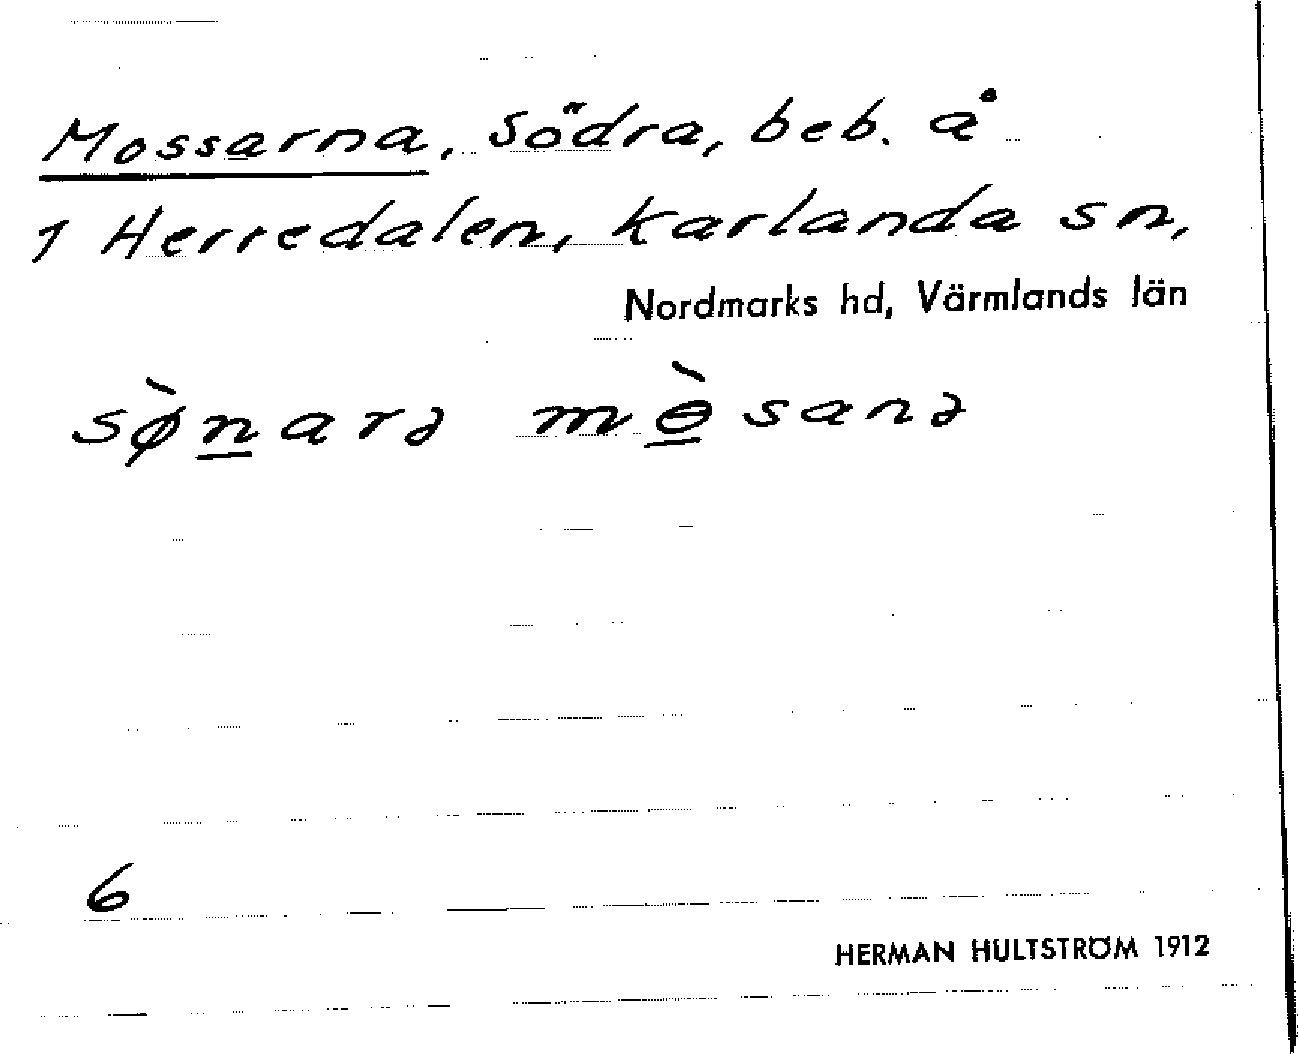 Mossarna, Södra, beb. å
1 Herredalen, Karlanda sn,
Nordmarks hd, Värmlands län
sø̀n̲arə mɵ̲̀sanə
6
HERMAN HULTSTRÖM 1912